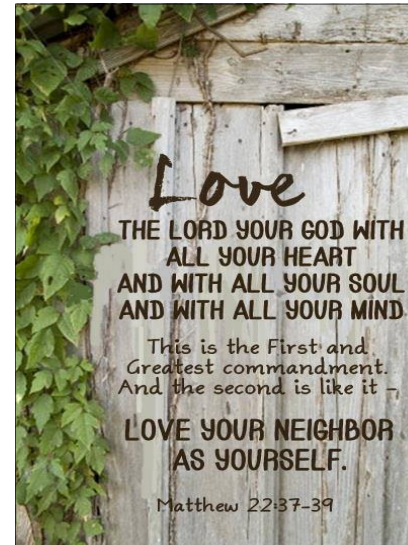 Love
THE LORD YOUR GOD WITH
ALL YOUR HEART
AND WITH ALL YOUR SOUL
AND WITH ALL YOUR MIND
This is the First and
Greatest commandment.
And the second is like it –
LOVE YOUR NEIGHBOR
AS YOURSELF.
Matthew 22:37-39